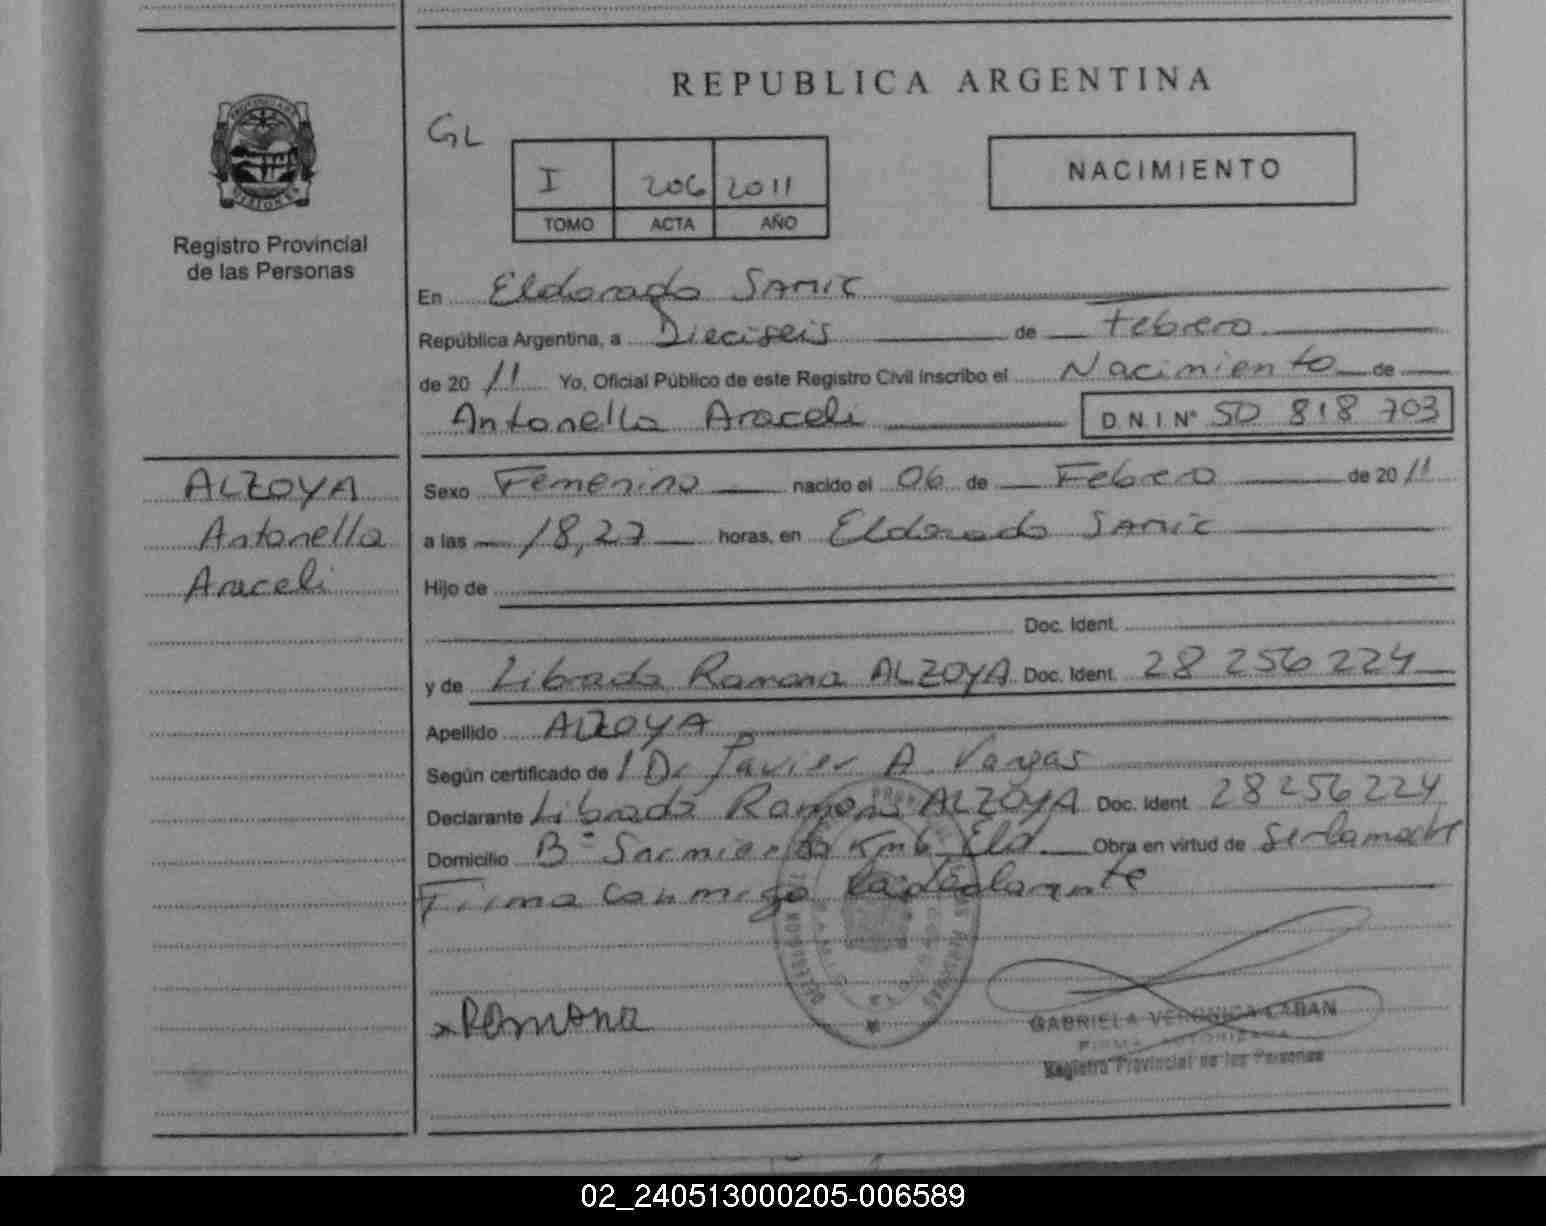 REPUBLICA ARGENTINA
GL
I 206 2011
TOMO ACTA AÑO
NACIMIENTO
Registro Provincial
de las Personas
En Eldorado SAMIC
República Argentina, a Dieciseis de Febrero
de 20 11 Yo, Oficial Público de este Registro Civil Inscribo el Nacimiento de
Antonella Araceli D.N.I Nº 50 818 703
ALZOYA
Antonella
Araceli
Sexo Femenino nacido el 06 de Febrero de 20 11
a las 18,27 horas, en Eldorado SAMIC
Hijo de
Doc. Ident.
y de Librada Ramona ALZOYA Doc. Ident. 28 256 224
Apellido ALZOYA
Según certificado de / Dr Javier A. Vargas
Declarante Librada Ramona ALZOYA Doc. Ident 28 256 224
Domicilio Bº Sarmiento Km6 Eld. Obra en virtud de ser la madre
Firma conmigo la declarante
RAMONA
GABRIELA VERONICA LABAN
FIRMA AUTORIZADA
Registro Provincial de las Personas
02_240513000205-006589